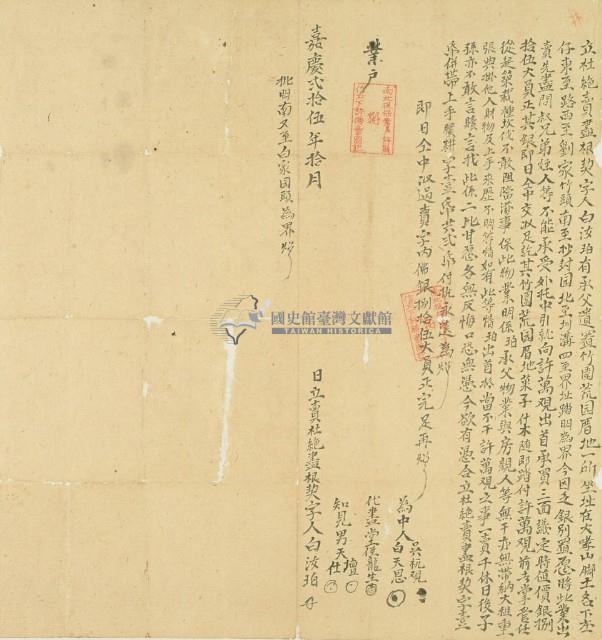 立杜絕賣盡根契字人白汝珀有承父遺置竹園荒园厝地一所坐址在大
仔東至路西至劉家竹頭南至 封园北至圳溝四至界址踏明為界今因乏銀別置愿將此業出
賣先盡問叔兄弟姪人等不能承受外托中引就向許萬觀出首承買三面議定時值價銀捌
拾伍大員正其銀即日仝中交收足訖其竹園荒园厝地菓子什木隨即踏付許萬觀前去掌管任
從起築栽種 伐不敢阻當滋事保此物業明係珀承父物業與房親人等無干亦無帶納大租重
張典掛他人財物及上手來歷不明等情如有此等情珀出首抵當不干許萬觀之事一賣千休日後子
孫亦不敢言贖言找此係二比甘愿各無反悔口恐無憑今欲有憑合立杜絕賣盡根契字壹
帋併帶上手 字壹帋共貳帋付執永遠為炤
即日仝中收過賣字內佛銀捌拾伍大員正完足再炤
為中人 吳 觀
白天恩
代書堂侄龍生
知見男天 壇
仕
業戶
嘉慶貳拾伍年拾月 日立賣杜絕盡根契字人白汝珀
批明南又至白家园頭為界炤
國史館臺灣文獻館
TAIWAN HISTORICA